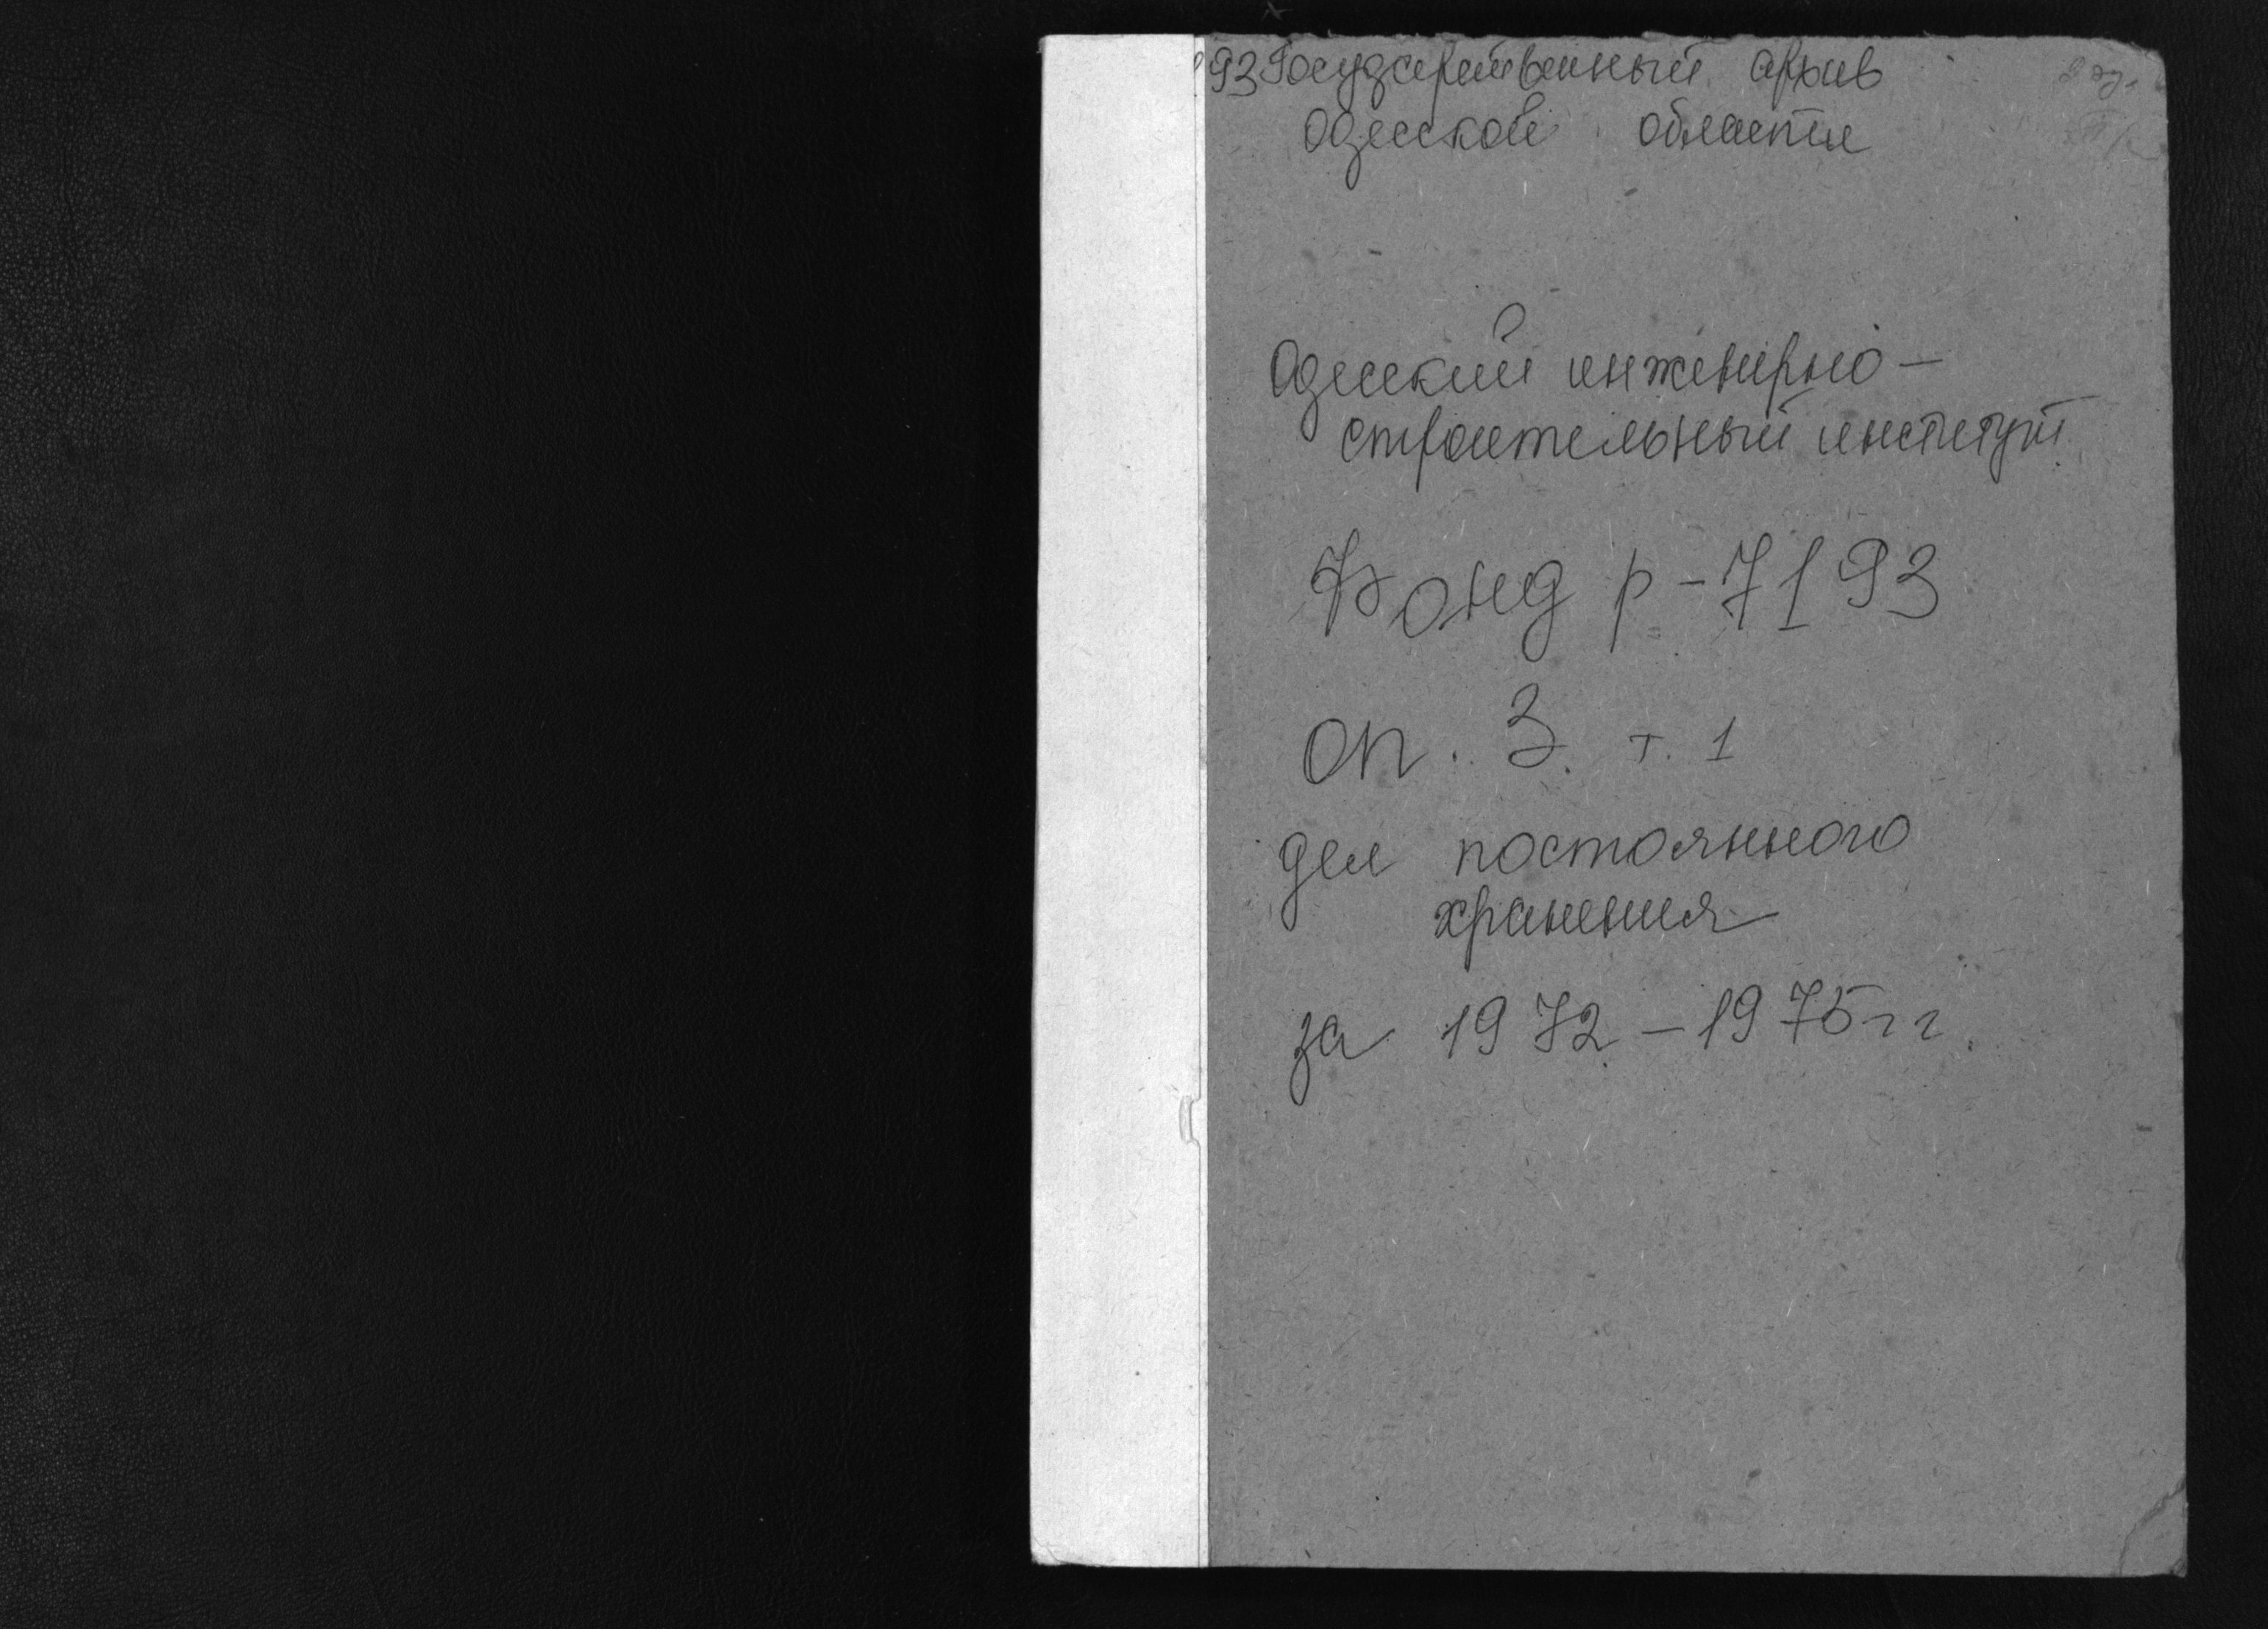 93 Государственный архив
Одесской области
Одесский инженерно-
строительный институт
Фонд р-7193
оп. 3. т. 1
дел постоянного
хранения
за 1972-1975 гг.